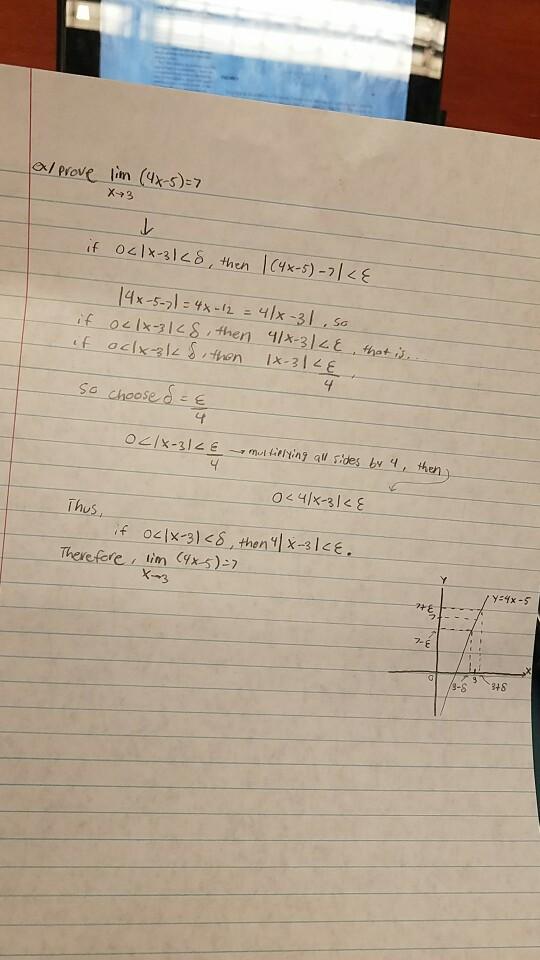 ex/prove lim (4x-5)=7
x→3
↓
if 0<|x-3|<δ, then |(4x-5)-7|<ε
|4x-5-7| = 4x-12 = 4|x-3|, so
if 0<|x-3|<δ, then 4|x-3|<ε, that is..
if 0<|x-3|<δ, then |x-3|<ε/4,
so choose δ = ε/4
0<|x-3|<ε/4 → multiplying all sides by 4, then
0<4|x-3|<ε
Thus,
if 0<|x-3|<δ, then 4|x-3|<ε.
Therefore, lim (4x-5)=7
x→3
Y
y=4x-5
7+ε
7
7-ε
0
x
3-δ 3 3+δ